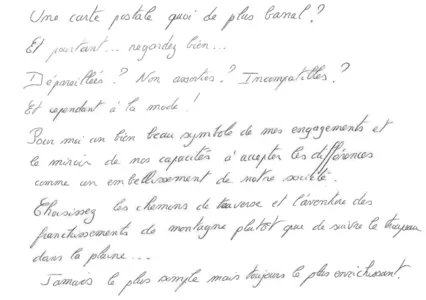 Une carte postale quoi de plus banal ?
Et pourtant... regardez bien...
Dépareillées ? Non assorties ? Incompatibles ?
Et cependant à la mode !
Pour moi un bien beau symbole de mes engagements et
le miroir de nos capacités à accepter les différences
comme un embellissement de notre société.
Choisissez les chemins de traverse et l'aventure des
franchissements de montagne plutôt que de suivre le troupeau
dans la plaine...
Jamais le plus simple mais toujours le plus enrichissant.